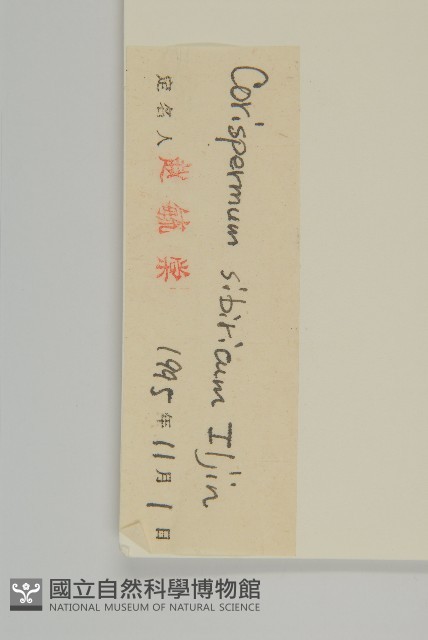 Corispermum sibiricum Iljin
定名人 赵毓棠 1995年11月1日
國立自然科學博物館
NATIONAL MUSEUM OF NATURAL SCIENCE